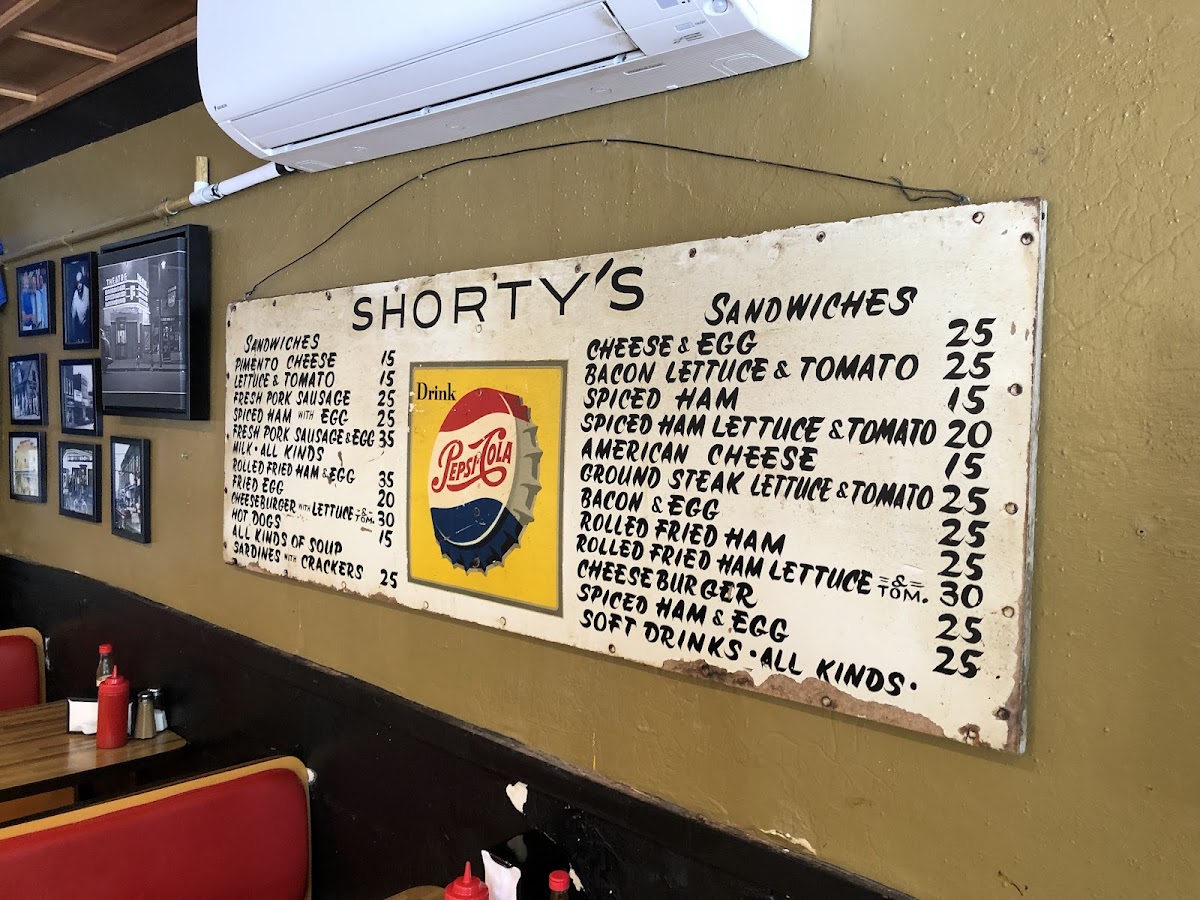 THEATRE
SHORTY'S
SANDWICHES
PIMENTO CHEESE 15
LETTUCE & TOMATO 15
FRESH PORK SAUSAGE 25
SPICED HAM WITH EGG 25
FRESH PORK SAUSAGE & EGG 35
MILK • ALL KINDS
ROLLED FRIED HAM & EGG 35
FRIED EGG 20
CHEESEBURGER WITH LETTUCE & TOM. 30
HOT DOGS 15
ALL KINDS OF SOUP
SARDINES WITH CRACKERS 25
Drink
PEPSI-COLA
SANDWICHES
CHEESE & EGG 25
BACON LETTUCE & TOMATO 25
SPICED HAM 15
SPICED HAM LETTUCE & TOMATO 20
AMERICAN CHEESE 15
GROUND STEAK LETTUCE & TOMATO 25
BACON & EGG 25
ROLLED FRIED HAM 25
ROLLED FRIED HAM LETTUCE =&= TOM. 30
CHEESEBURGER 25
SPICED HAM & EGG 25
SOFT DRINKS • ALL KINDS •